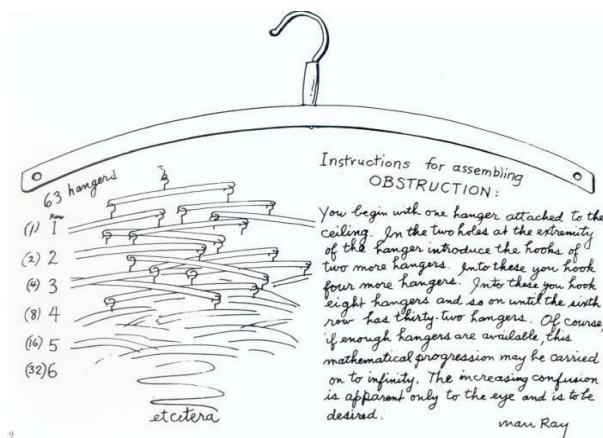 63 hangers
Row
(1) 1
(2) 2
(4) 3
(8) 4
(16) 5
(32) 6
etcetera
Instructions for assembling
OBSTRUCTION:
You begin with one hanger attached to the
ceiling. In the two holes at the extremity
of the hanger introduce the hooks of
two more hangers. Into these you hook
four more hangers. Into these you hook
eight hangers and so on until the sixth
row has thirty-two hangers. Of course,
if enough hangers are available, this
mathematical progression may be carried
on to infinity. The increasing confusion
is apparent only to the eye and is to be
desired.
man Ray